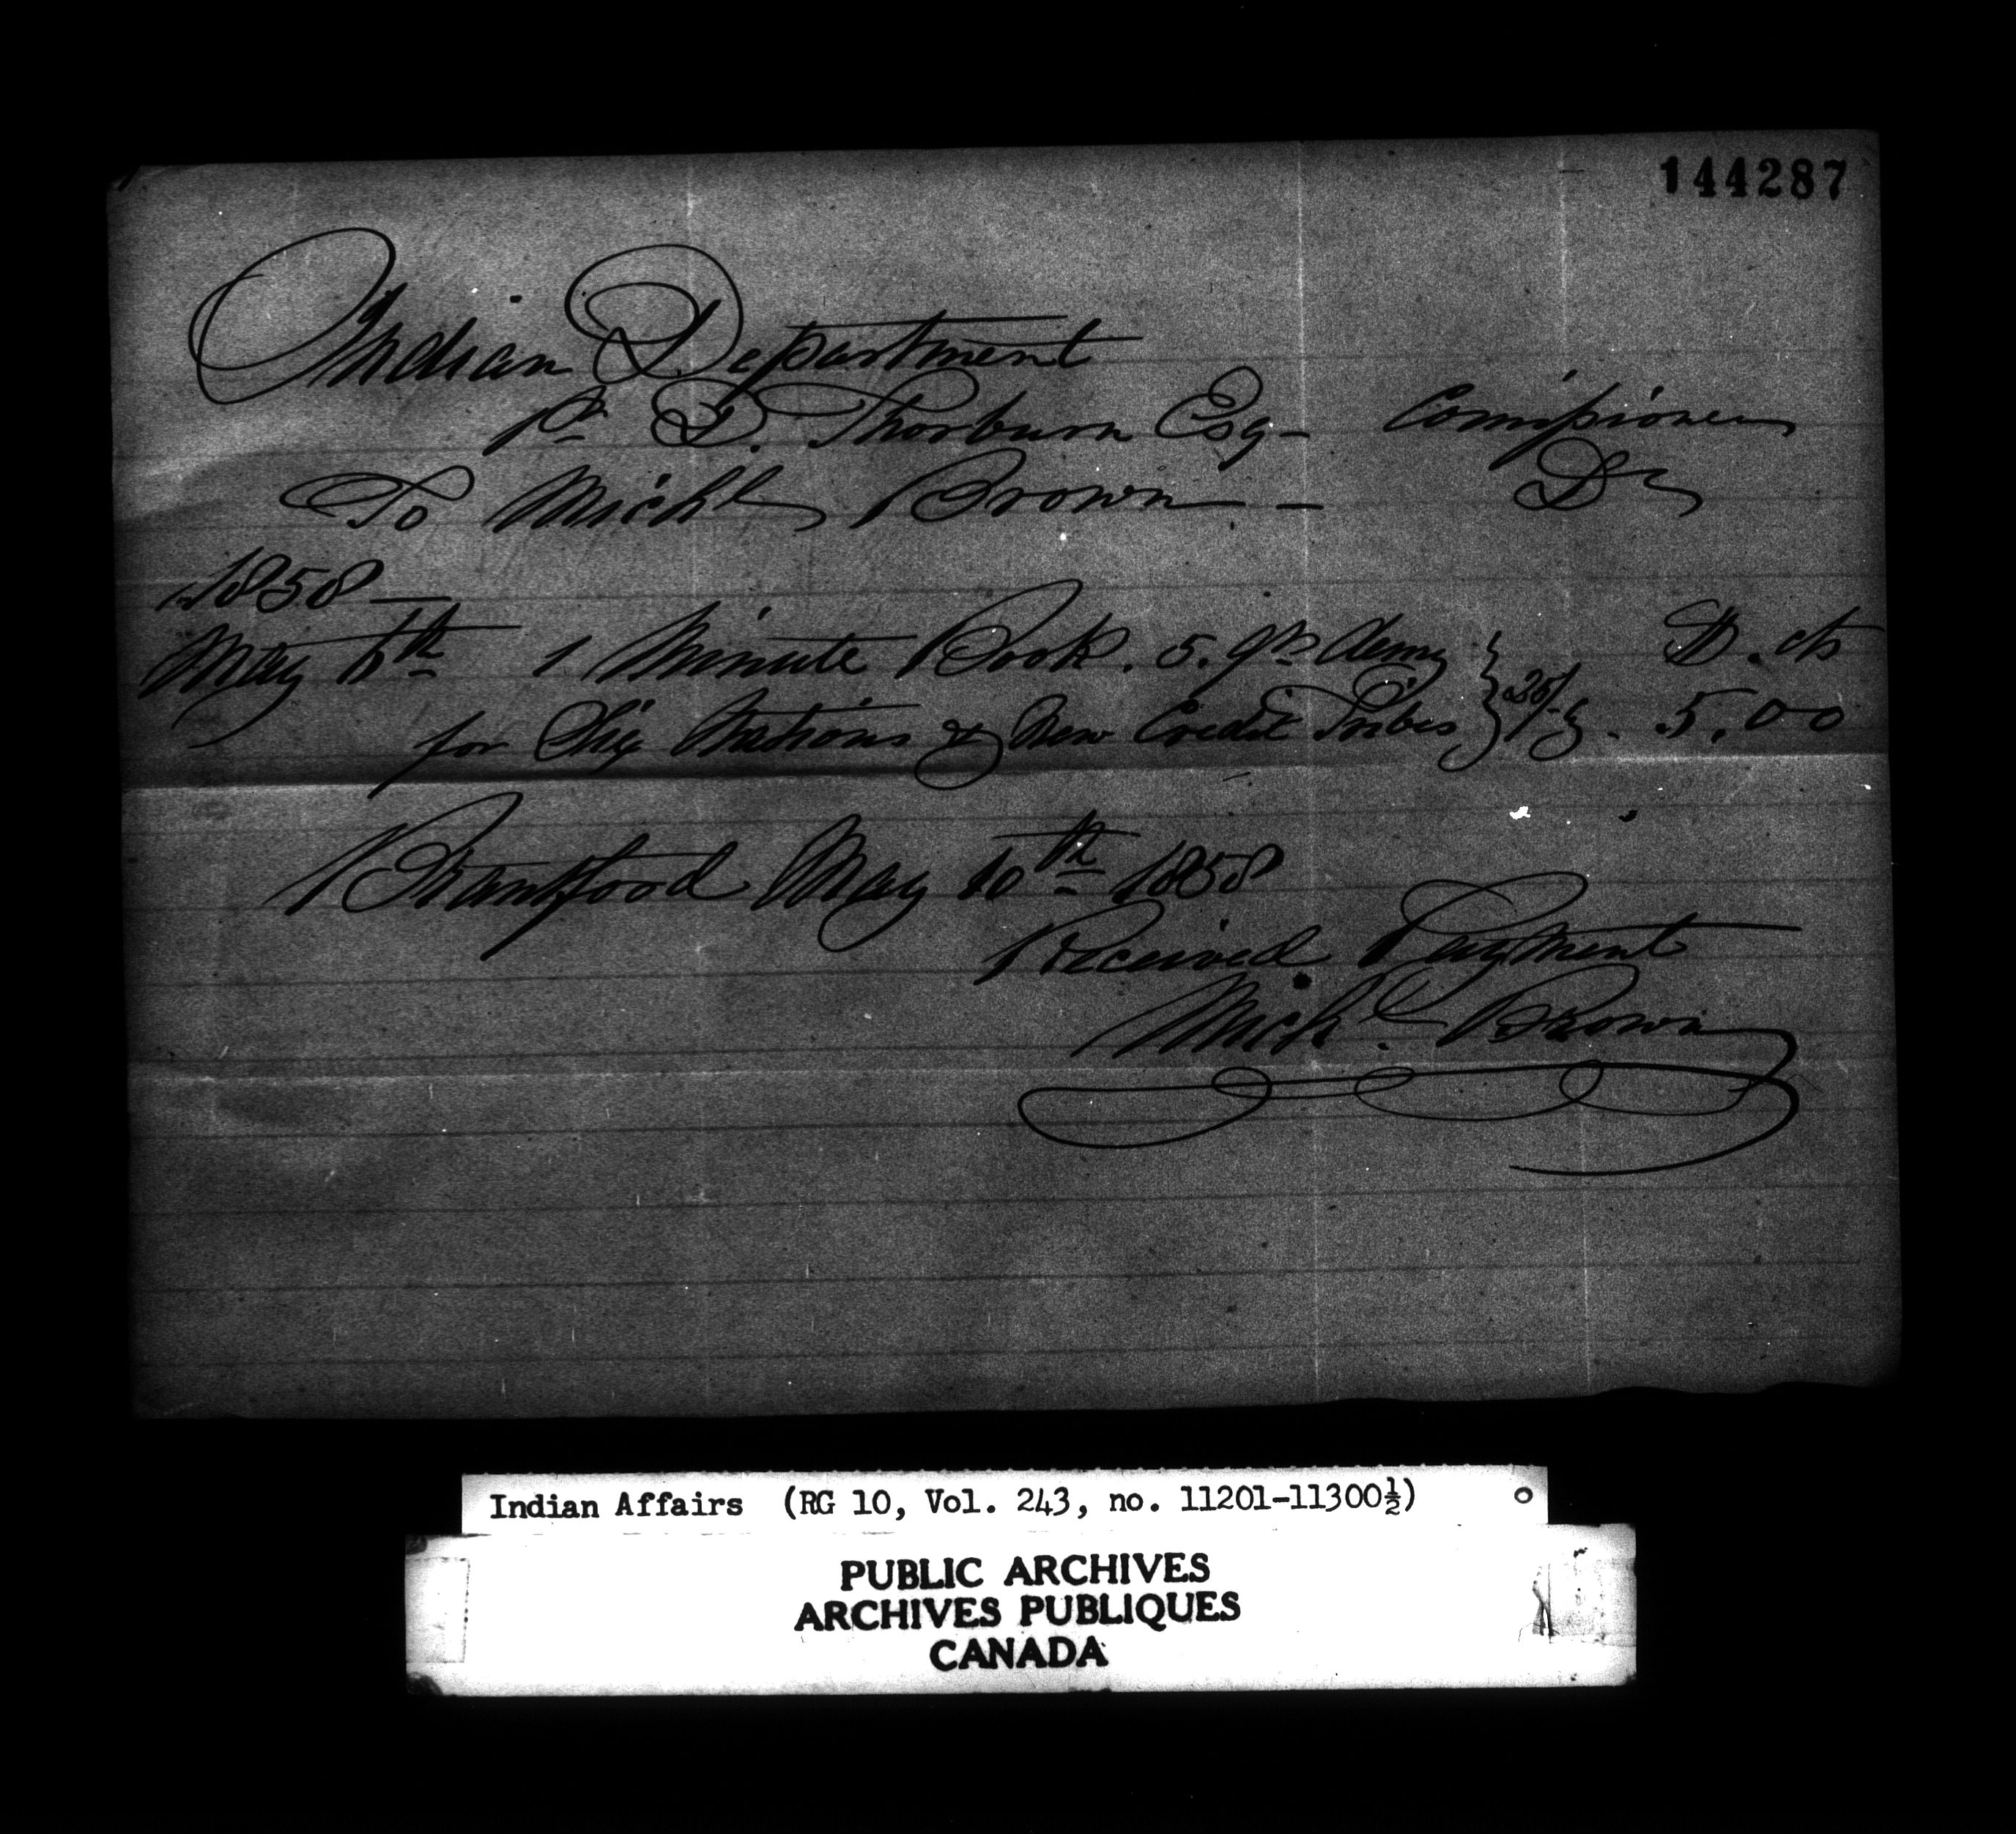 144287
Indian Department
pr D. Thorburn Esq - Commissioner
To Michl Brown - Dr
1858 -
May 6th 1 Minute Book. 5. qrs demy } D. cts
for Six Nations & New Credit Tribes } 25/- . 5.00
Brantford May 10th 1858
Received Payment
Michl Brown
Indian Affairs (RG 10, Vol. 243, no. 11201-11300½)
PUBLIC ARCHIVES
ARCHIVES PUBLIQUES
CANADA